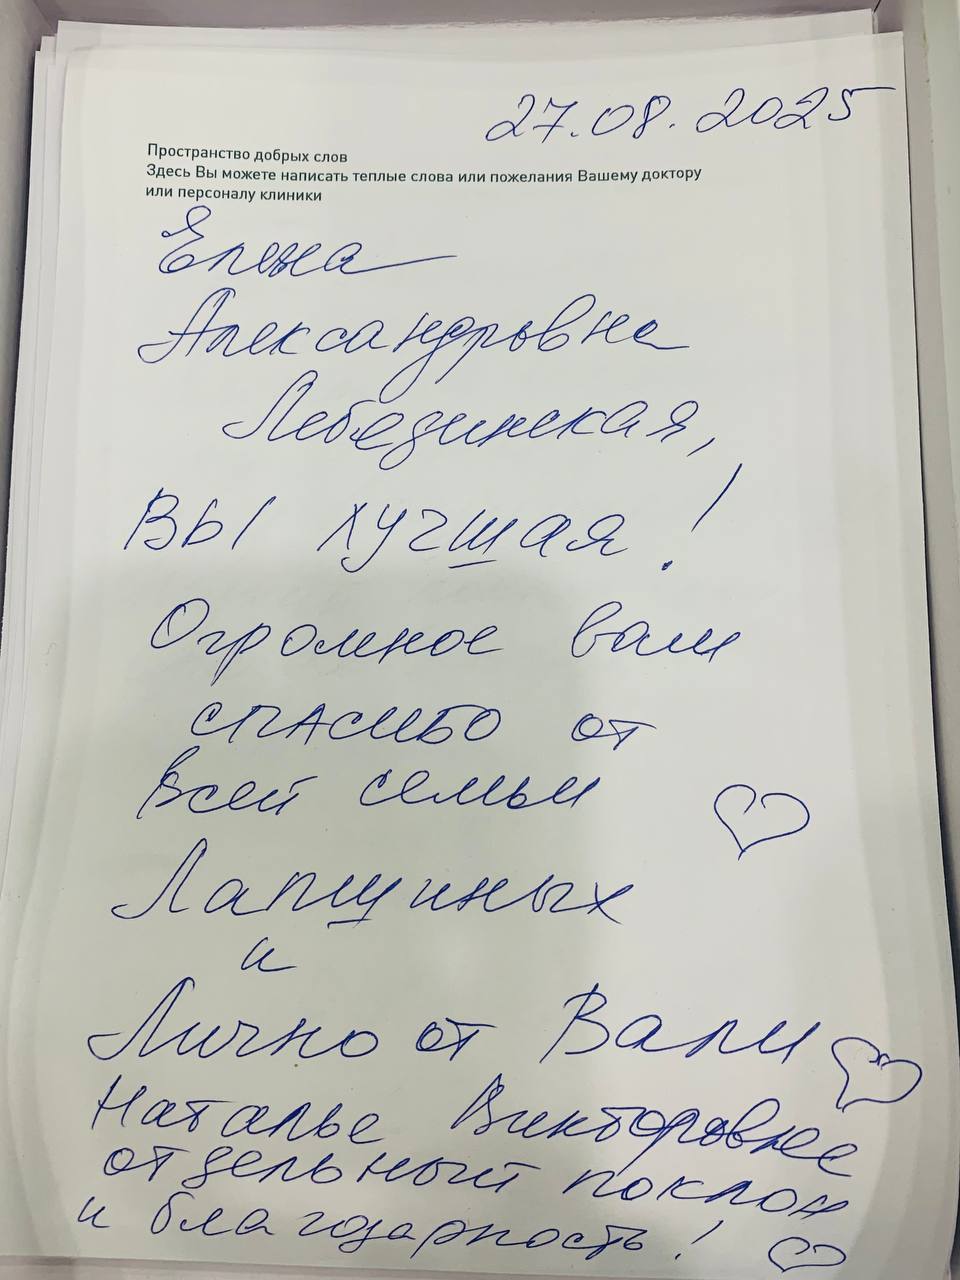 27.08.2025
Пространство добрых слов
Здесь Вы можете написать теплые слова или пожелания Вашему доктору
или персоналу клиники
Елена
Александровна
Лебединская,
ВЫ лучшая!
Огромное вам
спасибо от
всей семьи
Лапшиных
и
Лично от Вали
Наталье Викторовне
отдельный поклон
и благодарность!